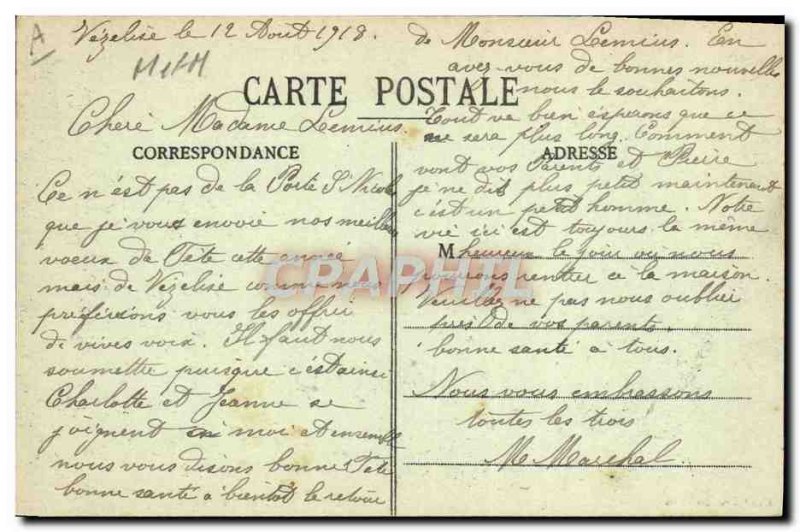 A
Vézelise le 12 Août 1918.
CARTE POSTALE
Cheré Madame Lemius
CORRESPONDANCE
Ce n'ést pas de la Porte St Nicolas
que je vous envoie nos meilleurs
voeux de Fète cette année
mais de Vézelise comme nous
preferions vous les offrir
de vives voix. Il faut nous
soumettre puisque c'est ainsi
Charlotte et Jeanne se
joignent a moi et ensemble
nous vous disons bonne Fète
bonne santé a bientôt le retour
de Monsieur Lemius. En
avez-vous de bonnes nouvelles
nous le souhaitons.
Tout va bien ésperons que ce
ne sera plus long. Comment
ADRESSE
vont vos Parents et Pierre
je ne dis plus petit maintenant
c'est un petit homme. Notre
vie ici est toujours la même
M heureux le jour ou nous
pourrons rentrer a la maison.
Veuillez ne pas nous oublier
près de vos parents.
bonne santé a tous.
Nous vous embrassons
toutes les trois
M Marchal
CPAPHIL